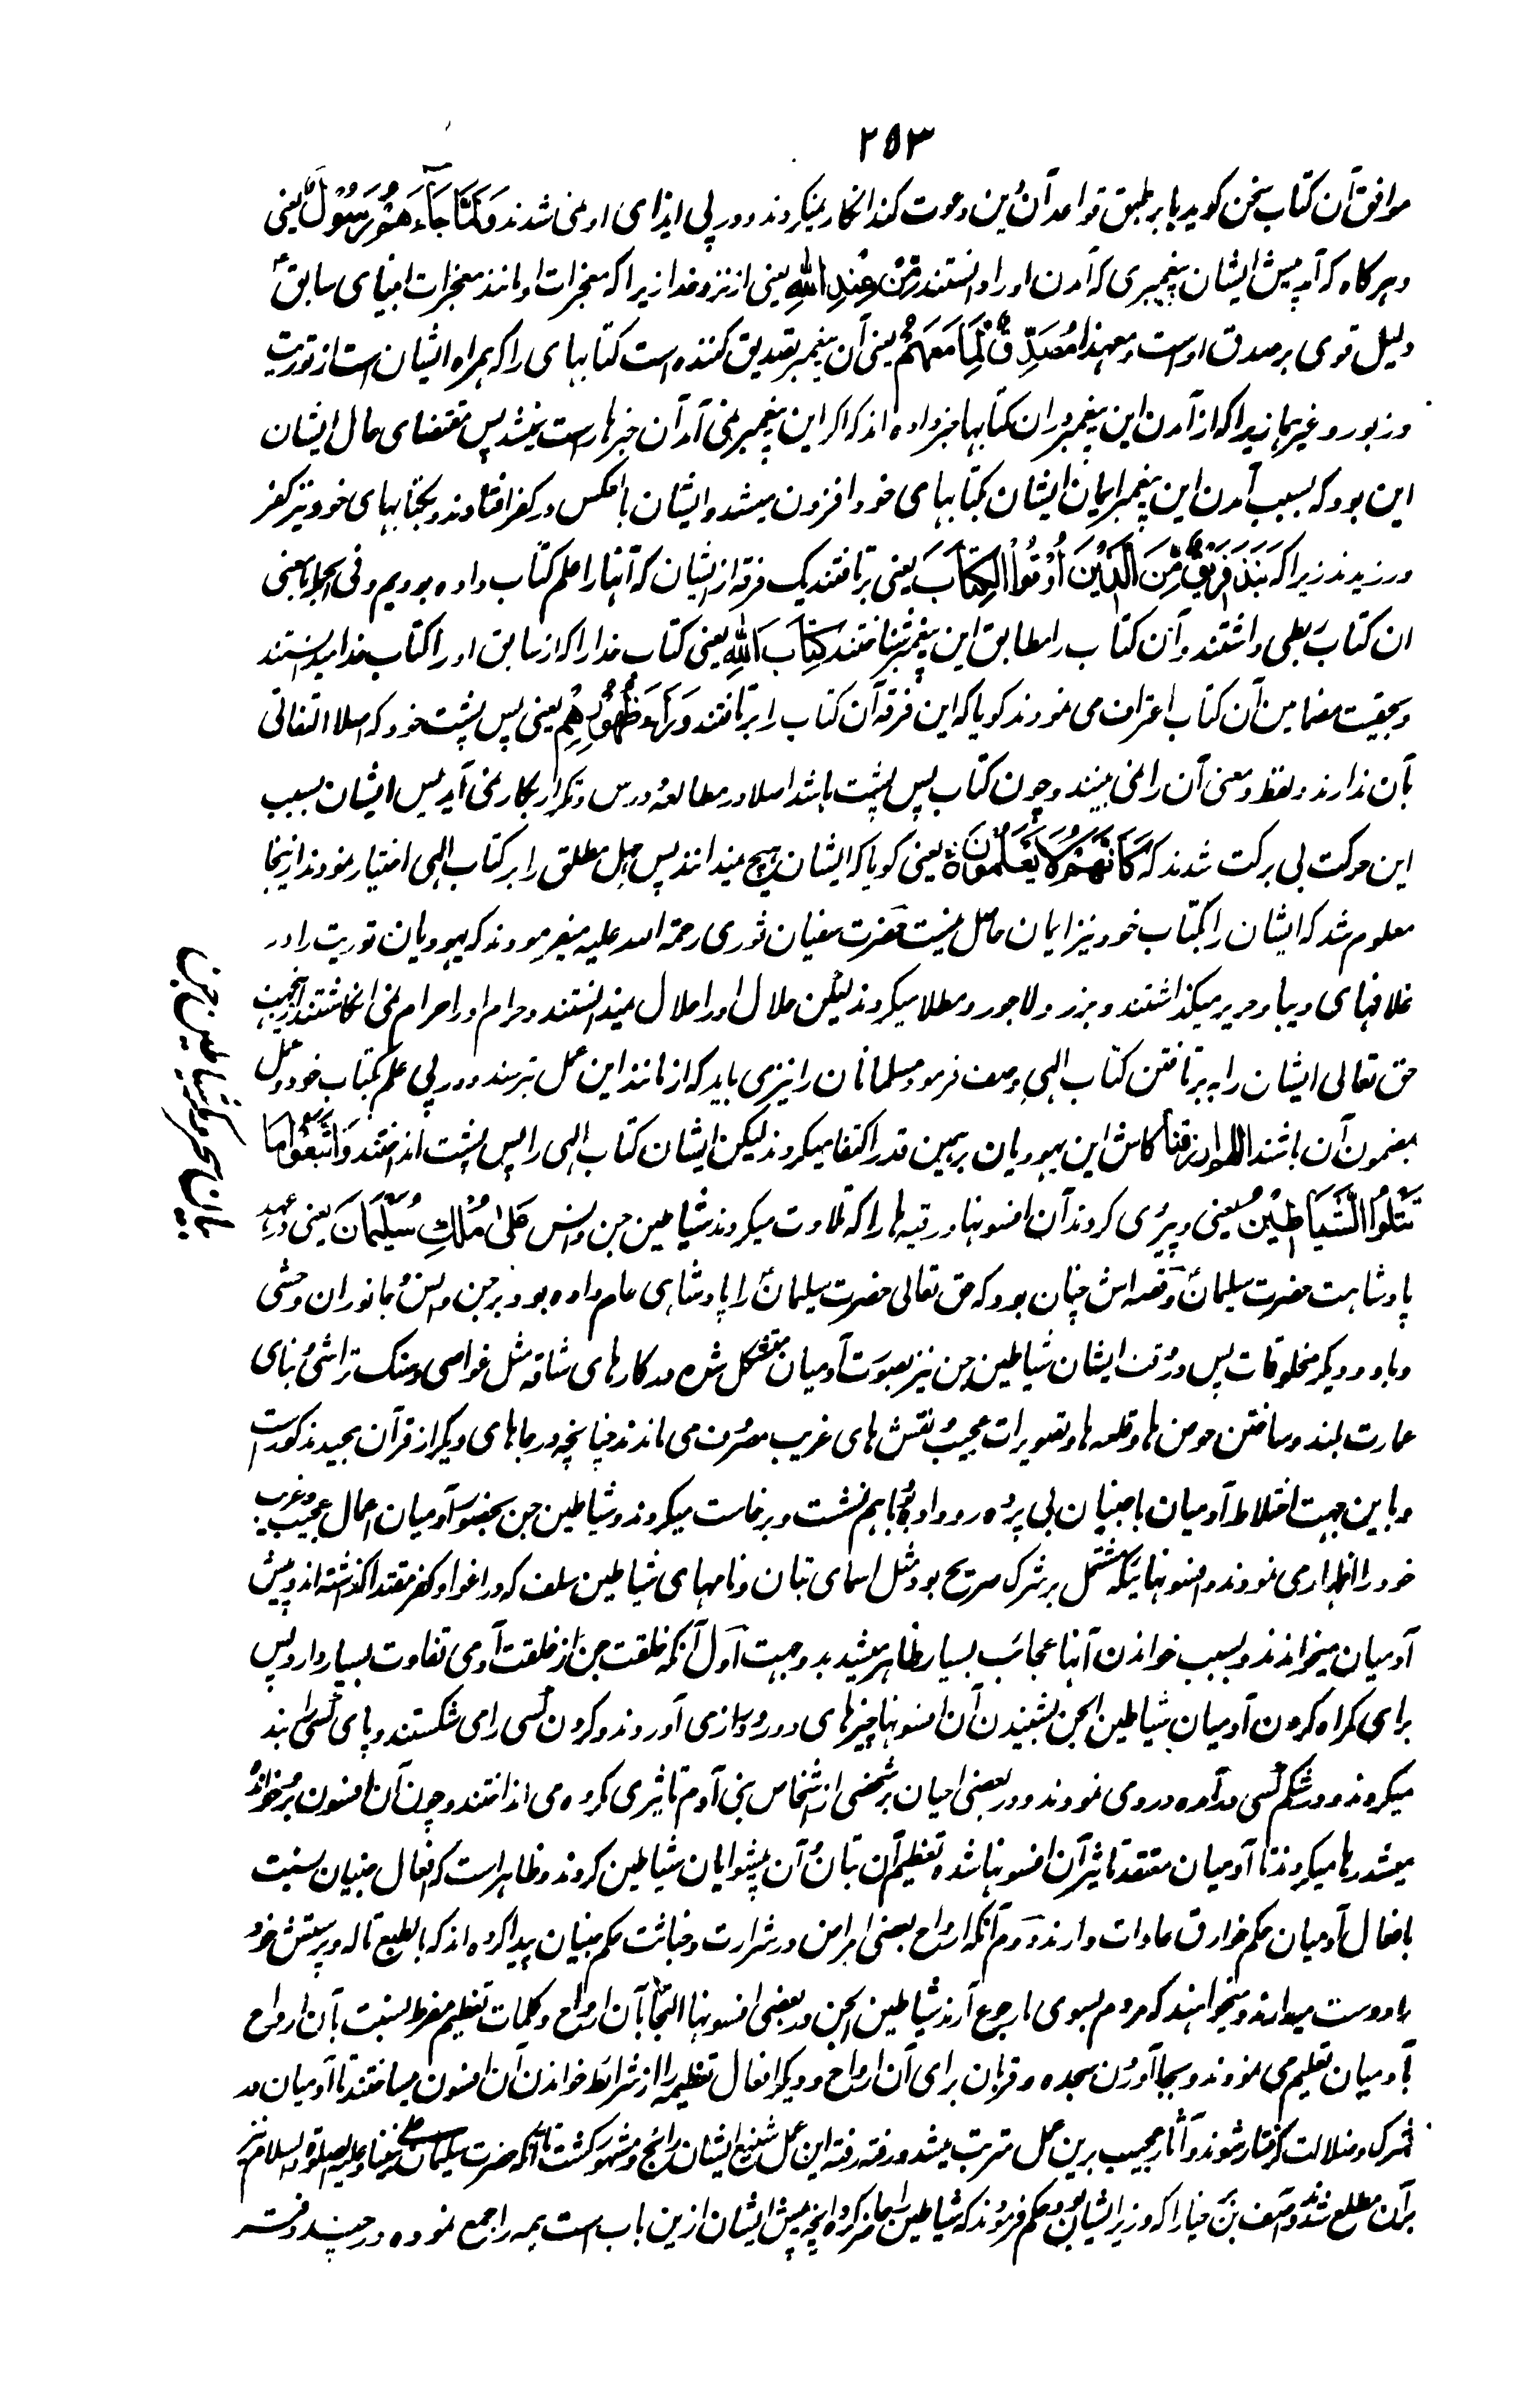 ۲۵۳
موافق آن کتاب سخن کوید یا بر طبق قواعد آن دین دعوت کند انکار نمیکردند و در پی ایذای او نمی شدند وَلَمَّا جَاءَهُمْ رَسُوْلٌ یعنی
و هرکاه که آمد پیش ایشان پیغمبری که آمدن او را دانستند مِّنْ عِنْدِ اللهِ یعنی از نزد خدا زیرا که معجزات او مانند معجزات انبیای سابق ع
دلیل قوی بر صدق اوست و معهذا مُصَدِّقٌ لِّمَا مَعَهُمْ یعنی آن پیغمبر تصدیق کننده است کتابهای را که همراه ایشان است از توریت
و زبور و غیرهما زیرا که از آمدن این پیغمبر در ان کتابها خبر داده اند که اکر این پیغمبر نمی آمد آن خبرها راست نمیشد پس مقتضای حال ایشان
این بود که بسبب آمدن این پیغمبر ایمان ایشان بکتابهای خود افزون میشد و ایشان بالعکس در کفر افتادند و بکتابهای خود نیز کفر
ورزیدند زیرا که نَبَذَ فَرِيْقٌ مِّنَ الَّذِيْنَ اُوْتُوا الْكِتَابَ یعنی برتافتند یک فرقه از ایشان که آنها را علم کتاب داده بودیم و فی الجمله بمعنی
ان کتاب علمی داشتند و آن کتاب را مطابق این پیغمبر شناختند كِتَابَ اللهِ یعنی کتاب خدا را که از سابق او را کتاب خدا میدانستند
و بحقیت مضامین آن کتاب اعتراف می نمودند کویا که این فرقه آن کتاب را برتافتند وَرَاءَ ظُهُوْرِهِمْ یعنی پس پشت خود که اصلا التفاتی
بآن ندارند و لفظ و معنی آن را نمی بینند و چون کتاب پس پشت باشد اصلا در مطالعه و درس و تکرار بکار نمی آید پس ایشان بسبب
این حرکت بی برکت شدند که كَاَنَّهُمْ لَا يَعْلَمُوْنَ یعنی کویا که ایشان هیچ نمیدانند پس جهل مطلق را بر کتاب الهی اختیار نمودند ازینجا
معلوم شد که ایشان را بکتاب خود نیز ایمان حاصل نیست حضرت سفیان ثوری رحمة الله علیه میفرمودند که یهودیان توریت را در
غلافهای دیبا و حریر میکذاشتند و بزر و لاجورد مطلا میکردند لیکن حلال او را حلال نمیدانستند و حرام او را حرام نمی انکاشتند ازینجهت
حق تعالی ایشان را به برتافتن کتاب الهی وصف فرمود مسلمانان را نیز می باید که از مانند این عمل بترسند و در پی علم بکتاب خود و عمل
بمضمون آن باشند اللهم ارزقنا کاش این یهودیان بر همین قدر اکتفا میکردند لیکن ایشان کتاب الهی را پس پشت انداختند وَاتَّبَعُوْا مَا
تَتْلُوا الشَّيَاطِيْنُ یعنی و پیروی کردند آن افسونها و رقیه ها را که تلاوت میکردند شیاطین جن و انس عَلٰى مُلْكِ سُلَيْمَانَ یعنی در عهد
پادشاهت حضرت سلیمان ع و قصه اش چنان بود که حق تعالی حضرت سلیمان ع را پادشاهی عام داده بود بر جن و انس و جانوران وحشی
و باد و دیکر مخلوقات پس در وقت ایشان شیاطین جن نیز بصورت آدمیان متشکل شده در کارهای شاقه مثل غواصی و سنک تراشی و بنای
عمارت بلند و ساختن حوض ها و قلعه ها و تصویرات عجیب و نقش های غریب مصروف می ماندند چنانچه در جاهای دیکر از قرآن مجید مذکورست
و باین جهت اختلاط آدمیان با جنیان بی پرده رو داده بود با هم نشست و برخاست میکردند و شیاطین جن بحضور آدمیان اعمال عجیب و غریب
خود را اظهار می نمودند و افسونهائیکه مشتمل بر شرک صریح بود مثل اسمای بتان و نامهای شیاطین سلف که در اغوا و کفر مقتدا کذشته اند پیش
آدمیان میخواندند و بسبب خواندن آنها عجائب بسیار ظاهر میشد بدو جهت اول آنکه خلقت جن از خلقت آدمی تفاوت بسیار دارد پس
برای کمراه کردن آدمیان شیاطین الجن بشنیدن آن افسونها چیزهای دور و دراز می آوردند و کردن کسی را می شکستند و پای کسی را بند
میکردند و در شکم کسی در آمده درد می نمودند و در بعضی احیان بر شخصی از اشخاص بنی آدم تاثیری کرده می انداختند و چون آن افسون برو خوانده
میشد رها میکردند تا آدمیان معتقد تاثیر آن افسونها شده تعظیم آن بتان و آن پیشوایان شیاطین کردند و ظاهر است که افعال جنیان بنسبت
بافعال آدمیان حکم خوارق عادات دارند دوم آنکه ارواح بعضی امراض در شرارت و خباثت حکم جنیان پیدا کرده اند که بالطبع تاله و پرستش خود
را دوست میدارند و میخواهند که مردم بسوی ما رجوع آرند شیاطین الجن در بعضی افسونها التجا بآن ارواح و کلمات تعظیم مفرط بنسبت بآن ارواح
بآدمیان تعلیم می نمودند و بجا آوردن سجده و قربان برای آن ارواح و دیکر افعال تعظیمه را از شرائط خواندن آن افسون میساختند تا آدمیان در
شرک و ضلالت کرفتار شوند و آثار عجیب برین عمل مترتب میشد و رفته رفته این عمل شنیع ایشان رائج و مشهور کشت تا آنکه حضرت سلیمان علی نبینا و علیه الصلوة و السلام نیز
بر آن مطلع شدند و آصف بن برخیا را که وزیر ایشان بود حکم فرمودند که شیاطین را حاضر کرده انچه پیش ایشان ازین باب است همه را جمع نموده در چند دفتر
بیان سحر شیاطین جن